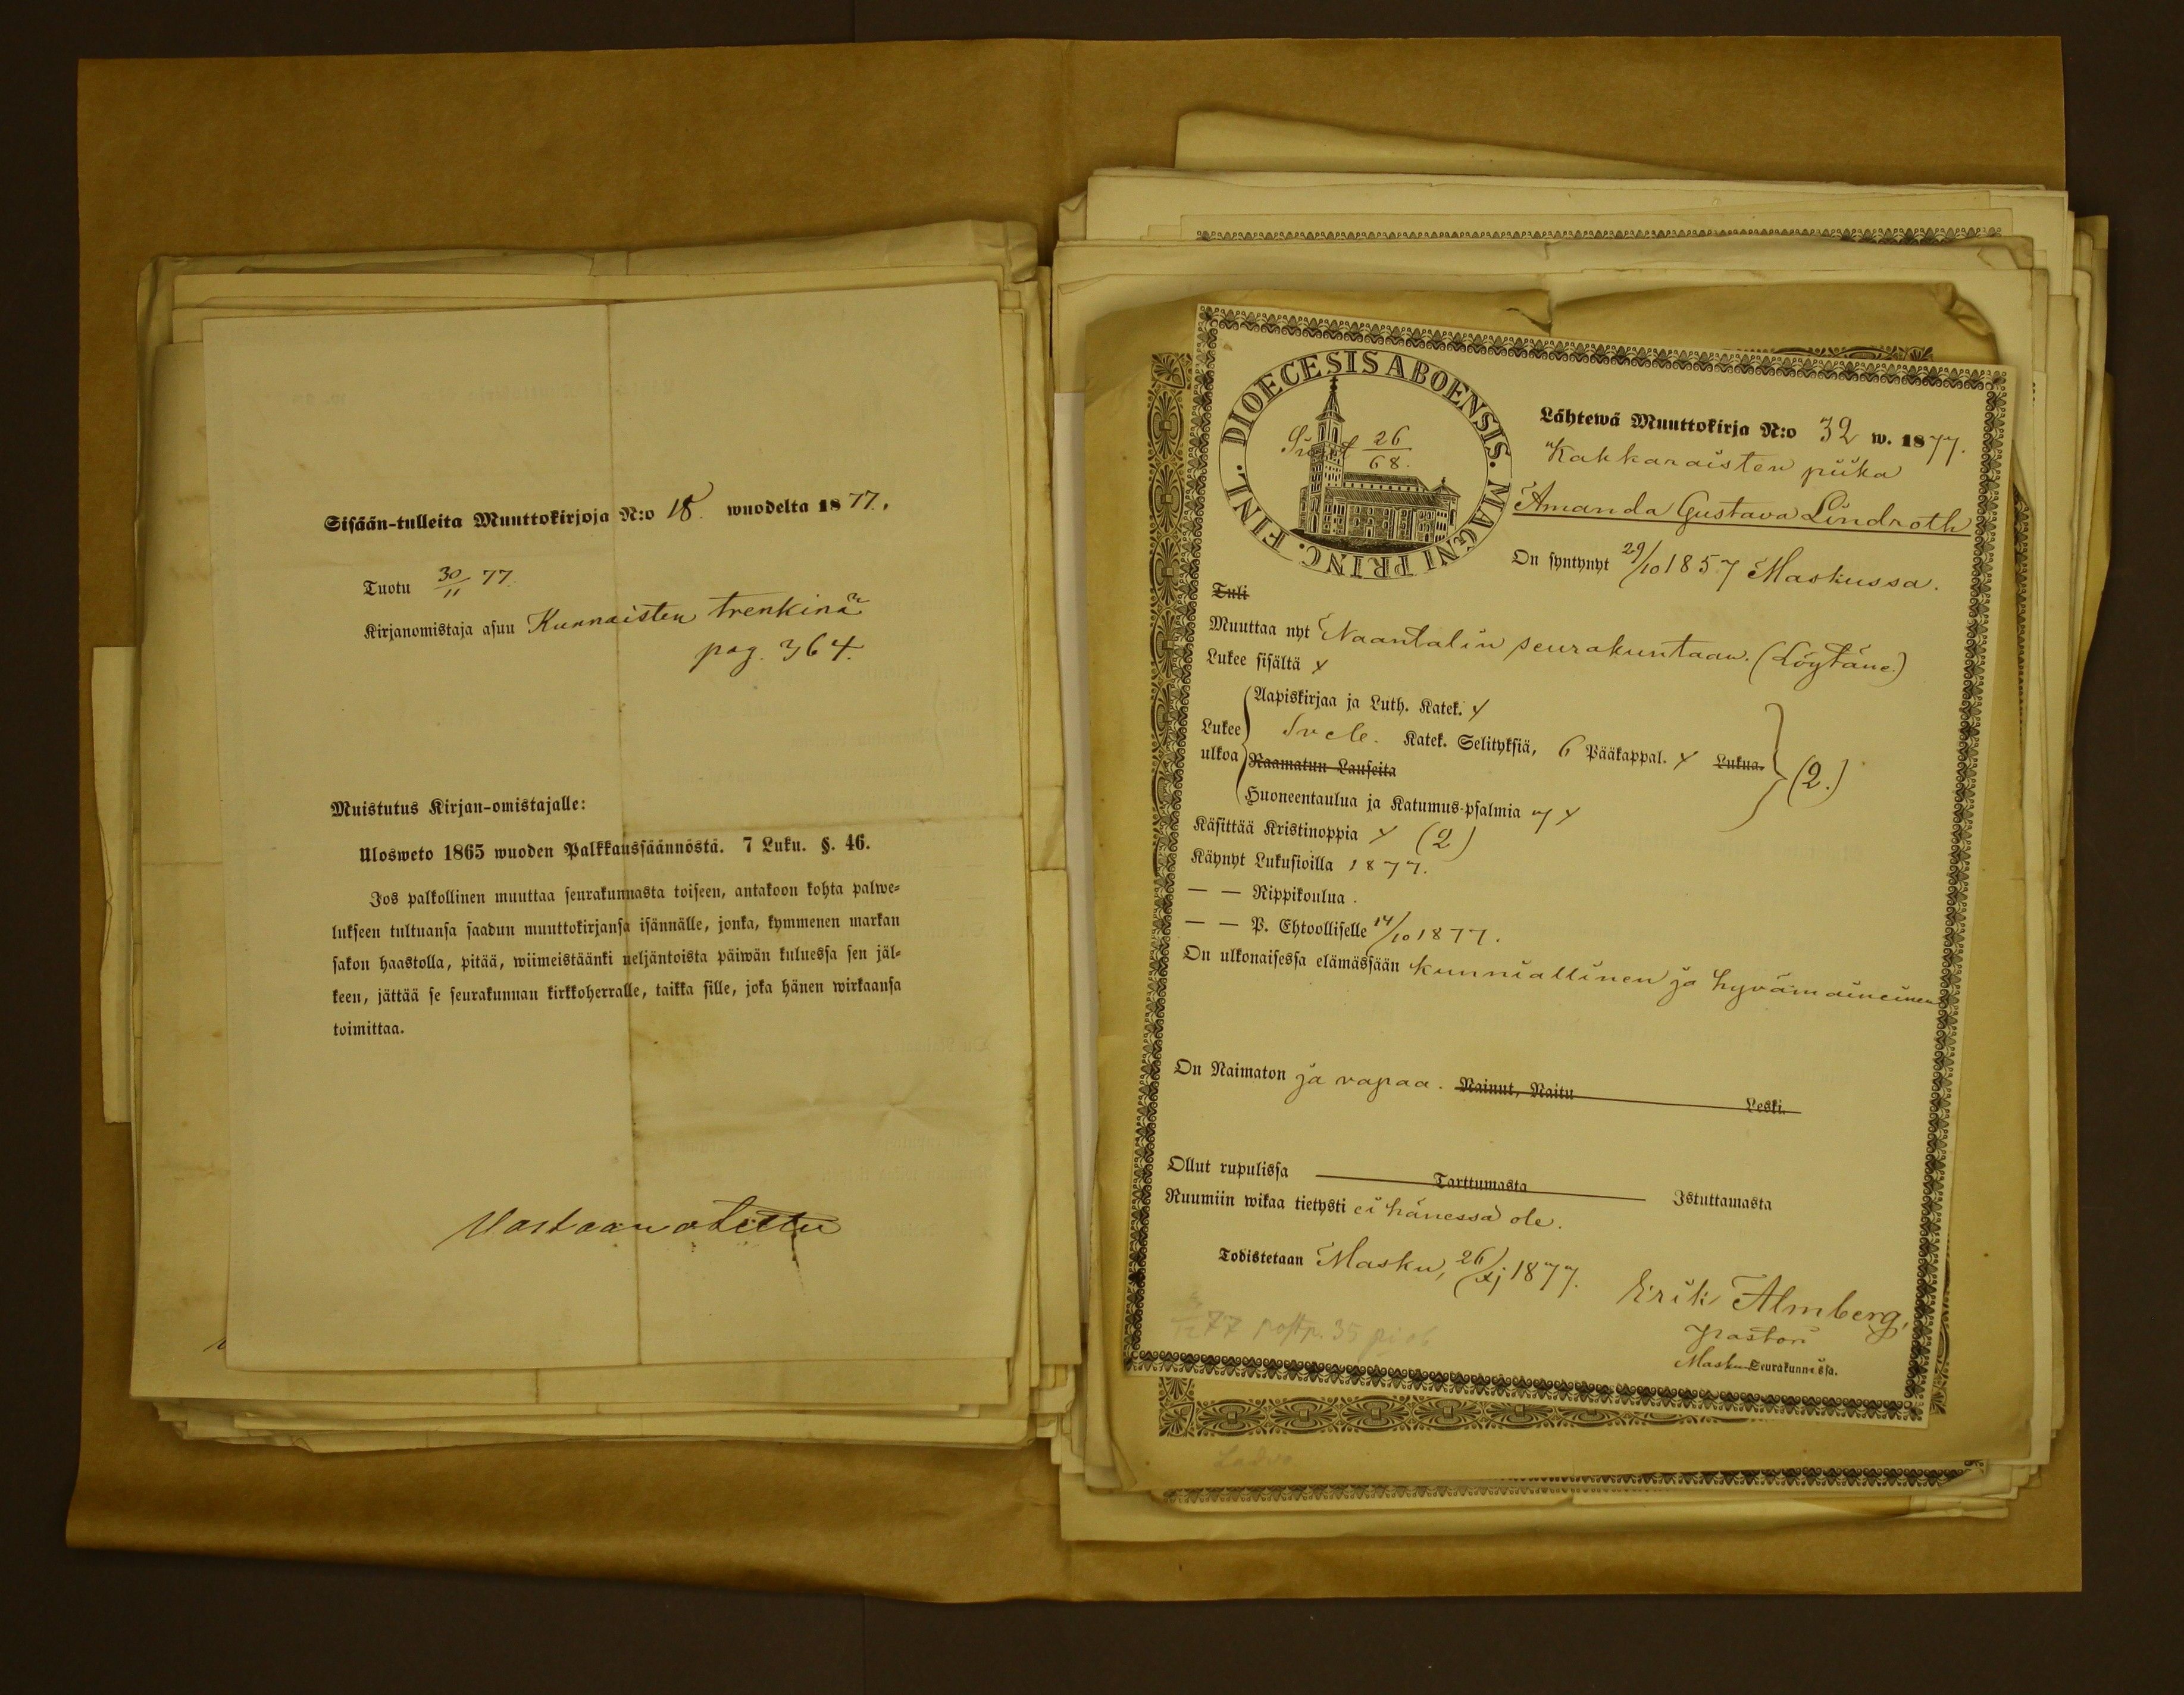 Sisään-tulleita Muuttokirjoja N:o 18. wuodelta 1877.
Tuotu 30/11 77.
Kirjanomistaja asuu Kunnaisten trenkinä
pag. 364.
Muistutus Kirjan-omistajalle:
Ulosweto 1865 wuoden Palkkaussäännöstä. 7 Luku. §. 46.
Jos palkollinen muuttaa seurakunnasta toiseen, antakoon kohta palwe-
lukseen tultuansa saadun muuttokirjansa isännälle, jonka, kymmenen markan
sakon haastolla, pitää, wiimeistäänki neljäntoista päiwän kuluessa sen jäl-
keen, jättää se seurakunnan kirkkoherralle, taikka sille, joka hänen wirkaansa
toimittaa.
Vastaan otettu
DIOECESIS ABOENSIS. MAGNI PRINC. FINL.
26/68.
Lähtewä Muuttokirja N:o 32 w. 1877.
Kakkanaisten piika
Amanda Gustava Lindroth
On syntynyt 29/10 1857 Maskussa.
Tuli
Muuttaa nyt Naantalin seurakuntaan. (Löytäne.)
Lukee sisältä x
Aapiskirjaa ja Luth. Katek. x
Lukee ulkoa Katek. Selityksiä, 6 Pääkappal. x Lukua. (2.)
Raamatun Lauseita
Huoneentaulua ja Katumus-psalmia x
Käsittää Kristinoppia x (2)
Käynyt Lukusioilla 1877.
— — Rippikoulua.
— — P. Ehtoolliselle 14/10 1877.
On ulkonaisessa elämässään kunniallinen ja hyvämaineinen
On Naimaton ja vapaa. Nainut, Naitu Leski.
Ollut rupulissa Tarttumasta Istuttamasta
Ruumiin wikaa tietysti ei hänessä ole.
Todistetaan Masku, 26/xj 1877.
Erik Almberg,
pastori
Masku Seurakunnassa.
77 postp. 35 pi